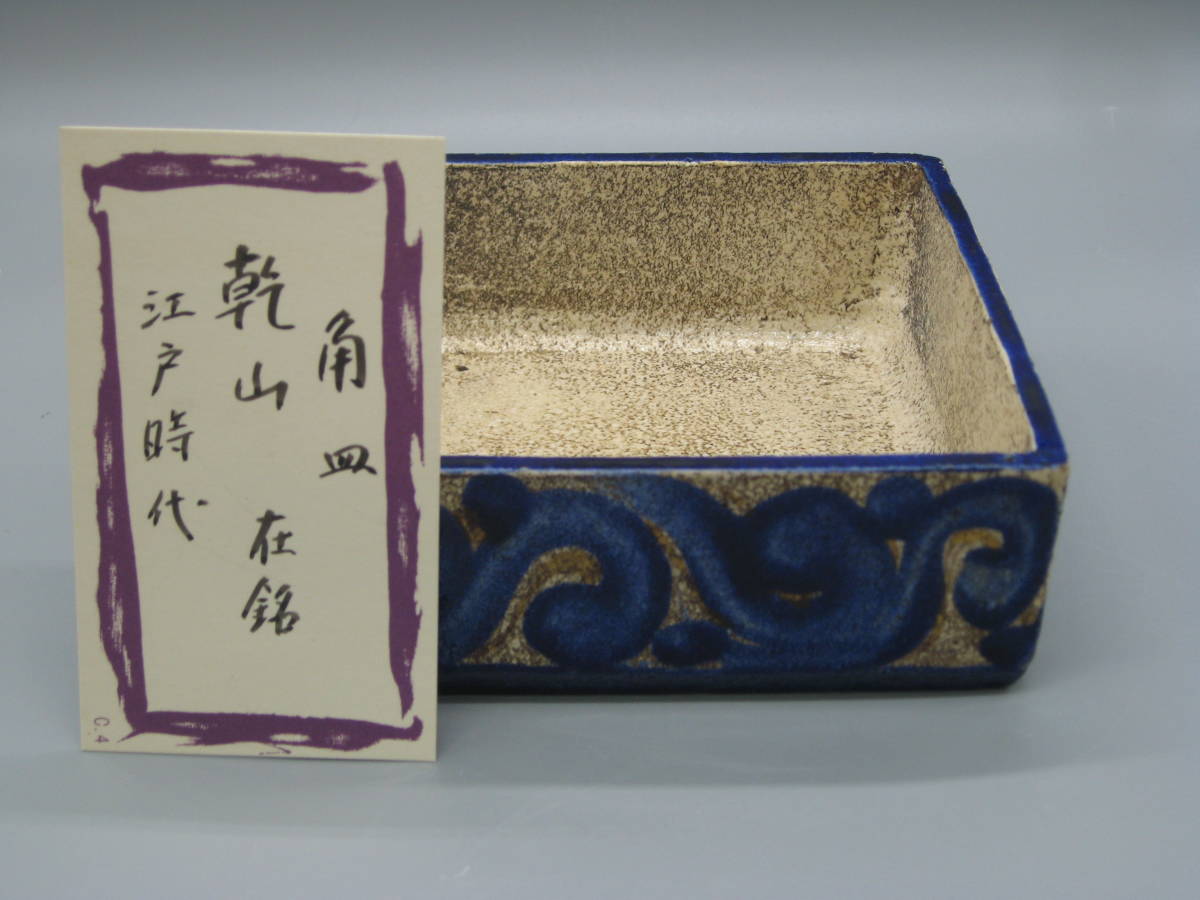 角皿
乾山 在銘
江戸時代
C.4